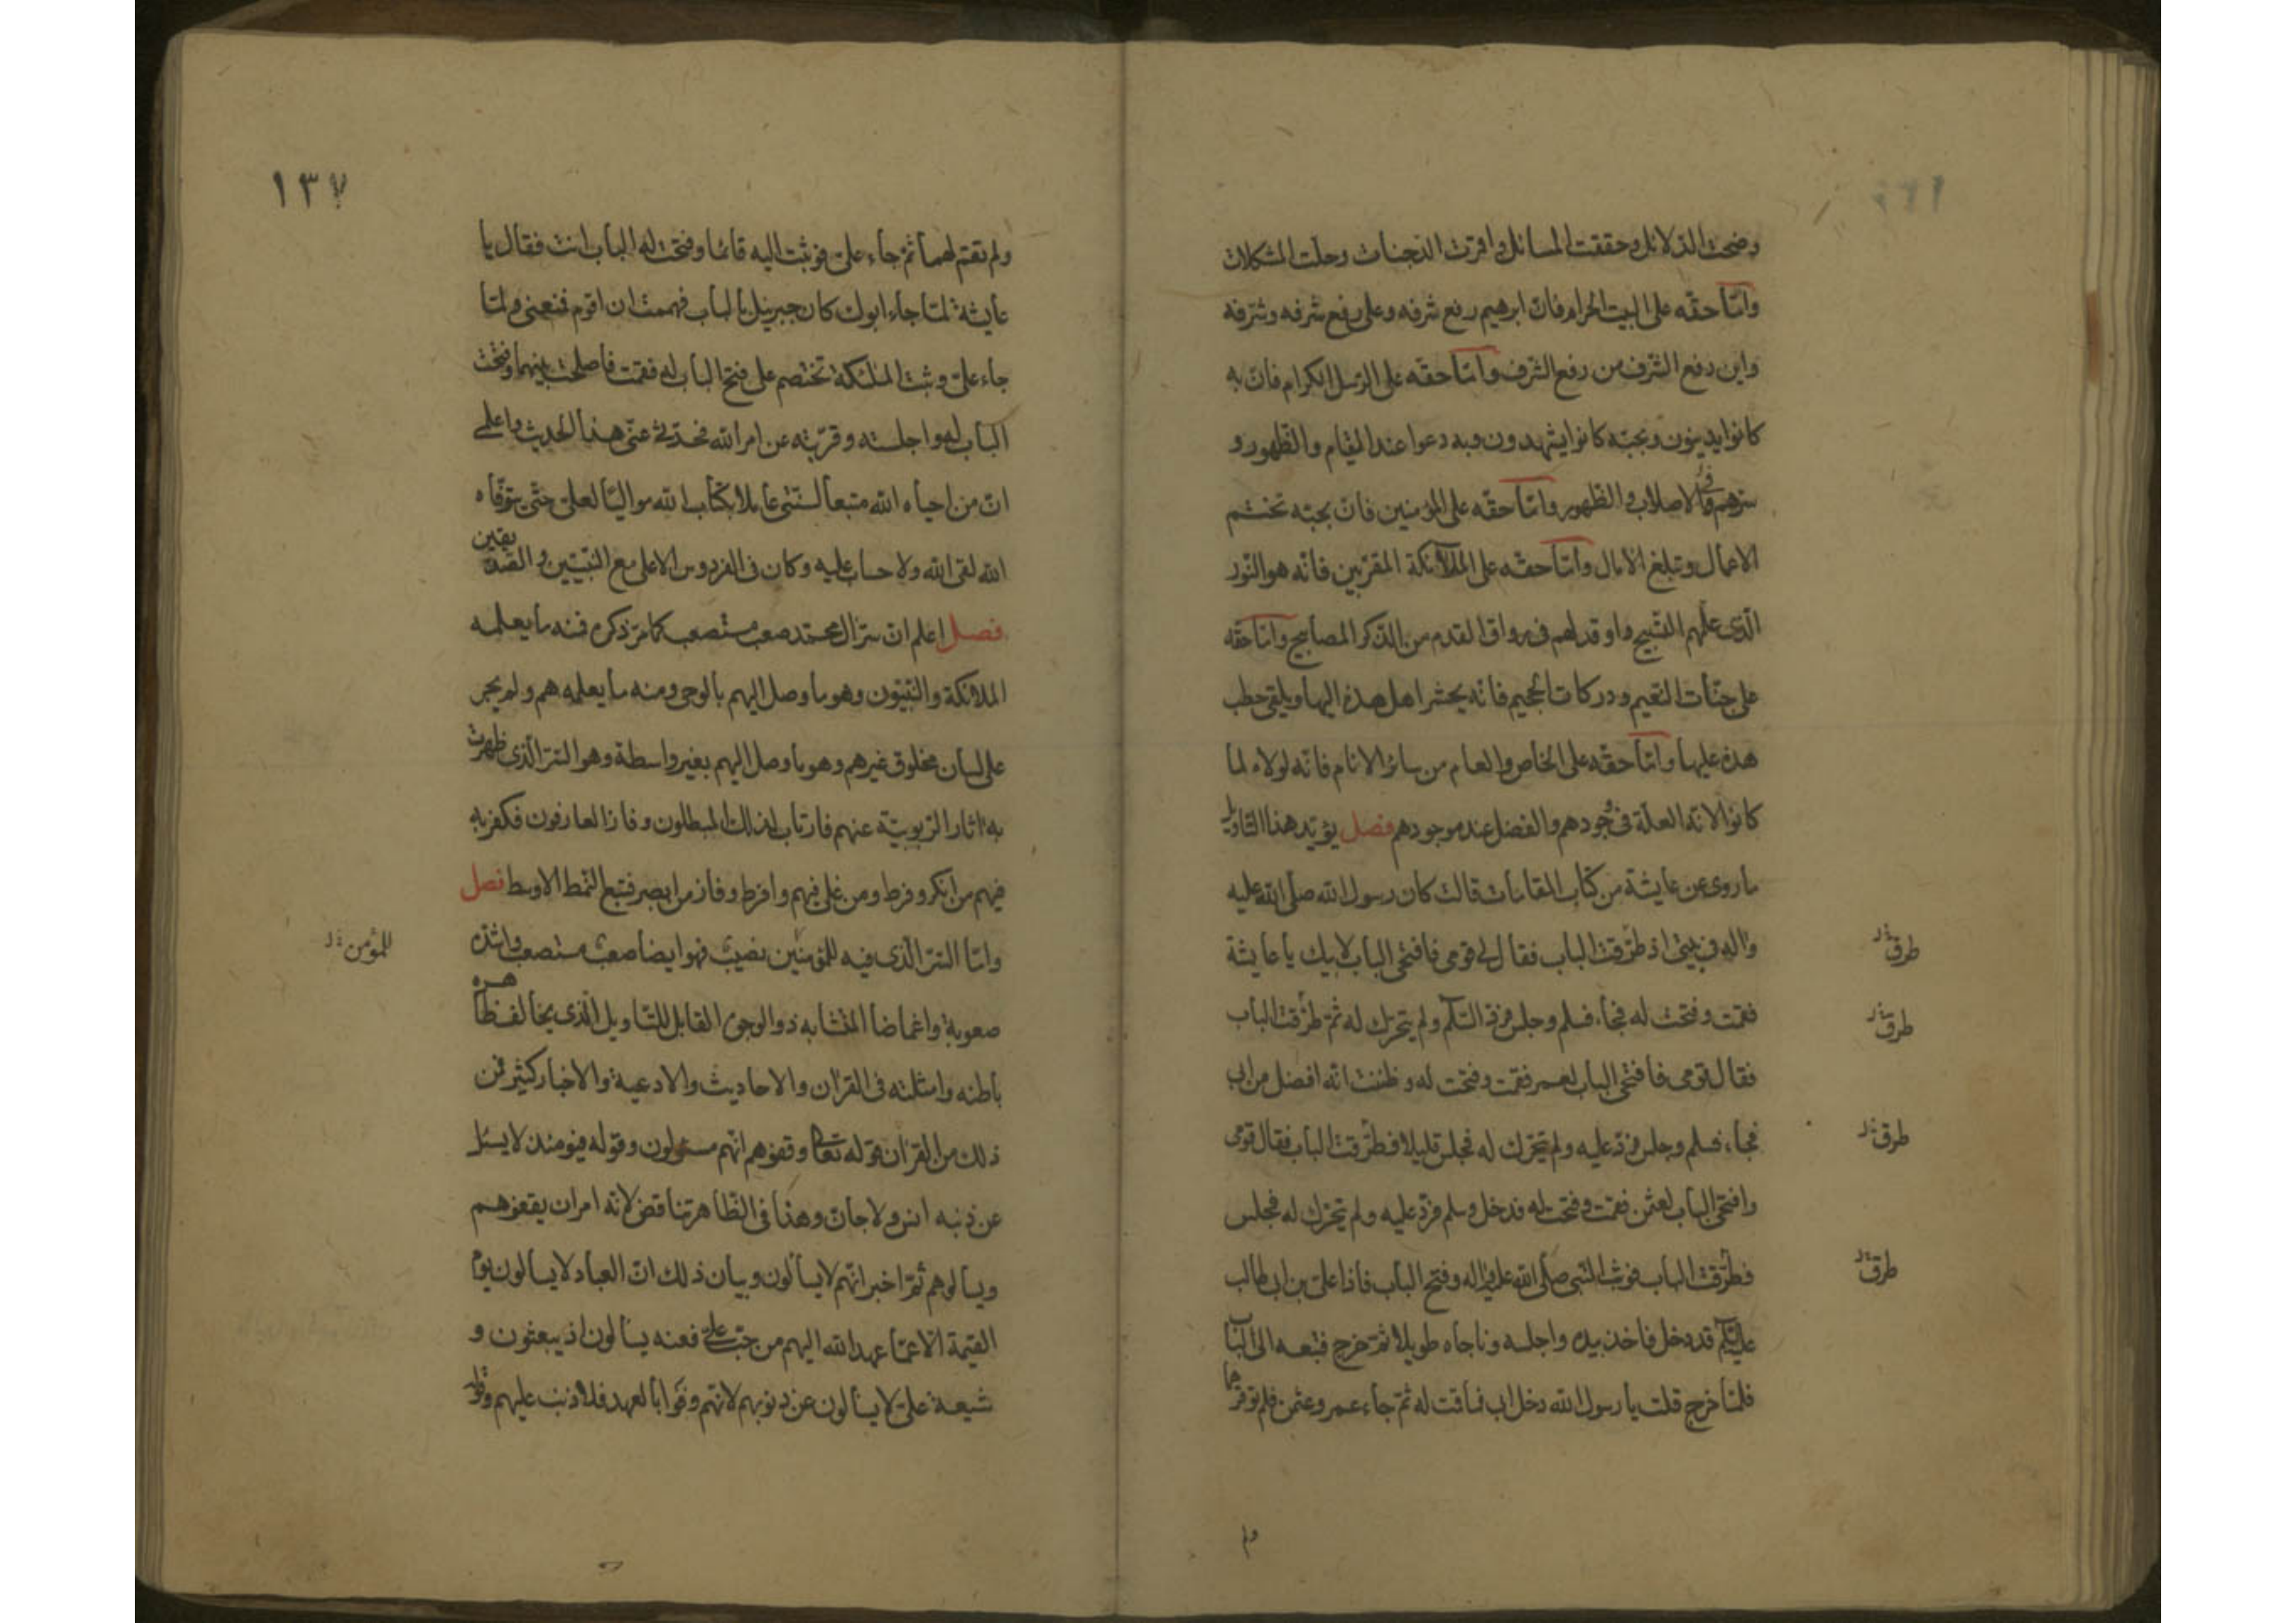 وضحت الدلائل وحققت المسائل وافترت الدجنات وحلت المشكلات
وامّا حقّه على البيت الحرام فانّ ابرهيم رفع شرفه وعلى رفع شرفه وشرّفه
واين رفع الشرف من رفع الشرف وامّا حقّه على الرسل الكرام فانّ به
كانوا يدينون وبحبّه كانوا يشهدون وبه دعوا عند القيام والظهور و
سرّهم فى الاصلاب والظهور وامّا حقّه على المؤمنين فانّ بحبّه تختتم
الاعمال وتبلغ الآمال وامّا حقّه على الملائكة المقرّبين فانّه هو النّور
الّذى علّمهم التسبيح واوقد لهم فى رواق القدم من الذّكر المصابيح وامّا حقّه
على جنّات النّعيم ودركات الجحيم فانّه يحشر اهل هذه اليها ويلقى حطب
هذه عليها وامّا حقّه على الخاص والعام من سائر الانام فانّه لولاه لما
كانوا لانّه العلّة فى وجودهم والفضل عند موجودهم فصل يؤيّد هذا التاويل
ما روى عن عايشة من كتاب المقامات قالت كان رسول الله صلّى الله عليه
واله فى بيتى اذ طرقت الباب فقال لى قومى فافتحى الباب لابيك يا عايشة
فقمت وفتحت له فجاء فسلم وجلس فردّ السّلام ولم يتحرّك له ثمّ طرقت الباب
فقال قومى فافتحى الباب لعمر فقمت وفتحت له وظننت انّه افضل من ابى
فجاء فسلم وجلس فردّ عليه ولم يتحرّك له فجلس قليلا فطرقت الباب فقال قومى
وافتحى الباب لعثمن فقمت وفتحت له فدخل وسلم فردّ عليه ولم يتحرّك له فجلس
فطرقت الباب فوثب النّبى صلّى الله عليه واله وفتح الباب فاذا علىّ بن ابى طالب
عليه السّلام قد دخل فاخذ بيده واجلسه وناجاه طويلا ثمّ خرج فتبعه الى الباب
فلمّا خرج قلت يا رسول الله دخل ابى فما قمت له ثمّ جاء عمر وعثمن فلم توقرهما
طرق
طرق
طرق
طرق
ولم
١٣٧
ولم تقم لهما ثمّ جاء علىّ فوثبت اليه قائما وفتحت له الباب انت فقال يا
عايشة لمّا جاء ابوك كان جبرئيل بالباب فهممت ان اقوم فمنعنى ولمّا
جاء علىّ وثبت الملئكة تختصم على فتح الباب له فقمت فاصلحت بينهم وفتحت
الباب له واجلسته وقرّبته عن امر الله فحدّثى عنّى هذا الحديث واعلمى
انّ من احياه الله متبعا لسنّتى عاملا بكتاب الله مواليا لعلىّ حتّى يتوفّاه
الله لقى الله ولا حساب عليه وكان فى الفردوس الاعلى مع النّبيّين والصّدّيقين
فصل اعلم انّ سرّ ال محمّد صعب مستصعب كما مرّ ذكره فمنه ما يعلمه
الملائكة والنّبيّون وهو ما وصل اليهم بالوحى ومنه ما يعلمه هم ولم يجر
على لسان مخلوق غيرهم وهو ما وصل اليهم بغير واسطة وهو السّرّ الّذى ظهرت
به اثار الرّبوبيّة عنهم فارتاب لذلك المبطلون وفاز العارفون فكفر به
فيهم من انكر وفرط ومن غلى فيهم وافرط وفاز من ابصر فتبع النمط الاوسط فصل
وامّا السّرّ الّذى فيه للمؤمنين نصيب فهو ايضا صعب مستصعب واشدّه
صعوبة واغماضا المتشابه ذو الوجوه القابل للتّاويل الّذى يخالف ظاهره
باطنه وامثلته فى القرآن والاحاديث والادعية والاخبار كثير فمن
ذلك من القرآن قوله تعالى وقفوهم انّهم مسئولون وقوله فيومئذ لا يسئل
عن ذنبه انس ولا جانّ وهذا فى الظّاهر تناقض لانّه امر ان يقفوهم
ويسالوهم ثمّ اخبر انّهم لا يسألون وبيان ذلك انّ العباد لا يسالون يوم
القيمة الّا عمّا عهد الله اليهم من حبّ علىّ فعنه يسألون اذ يبعثون و
شيعة علىّ لا يسألون عن ذنوبهم لانّهم وفوا بالعهد فلا ذنب عليهم
للمؤمن